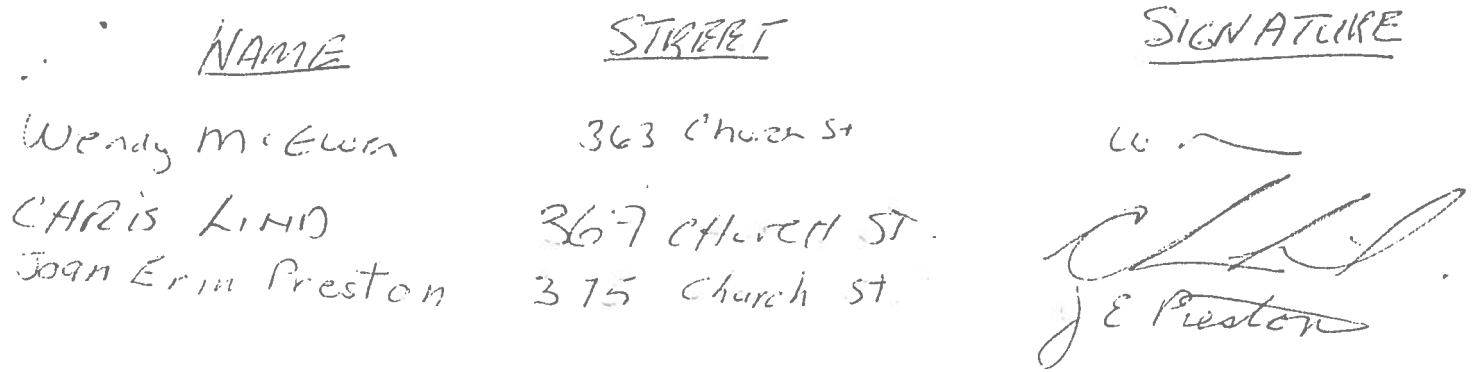 NAME STREET SIGNATURE
Wendy McEwen 363 Church St
CHRIS LIND 367 CHURCH ST.
Joan Erin Preston 375 Church St J E Preston